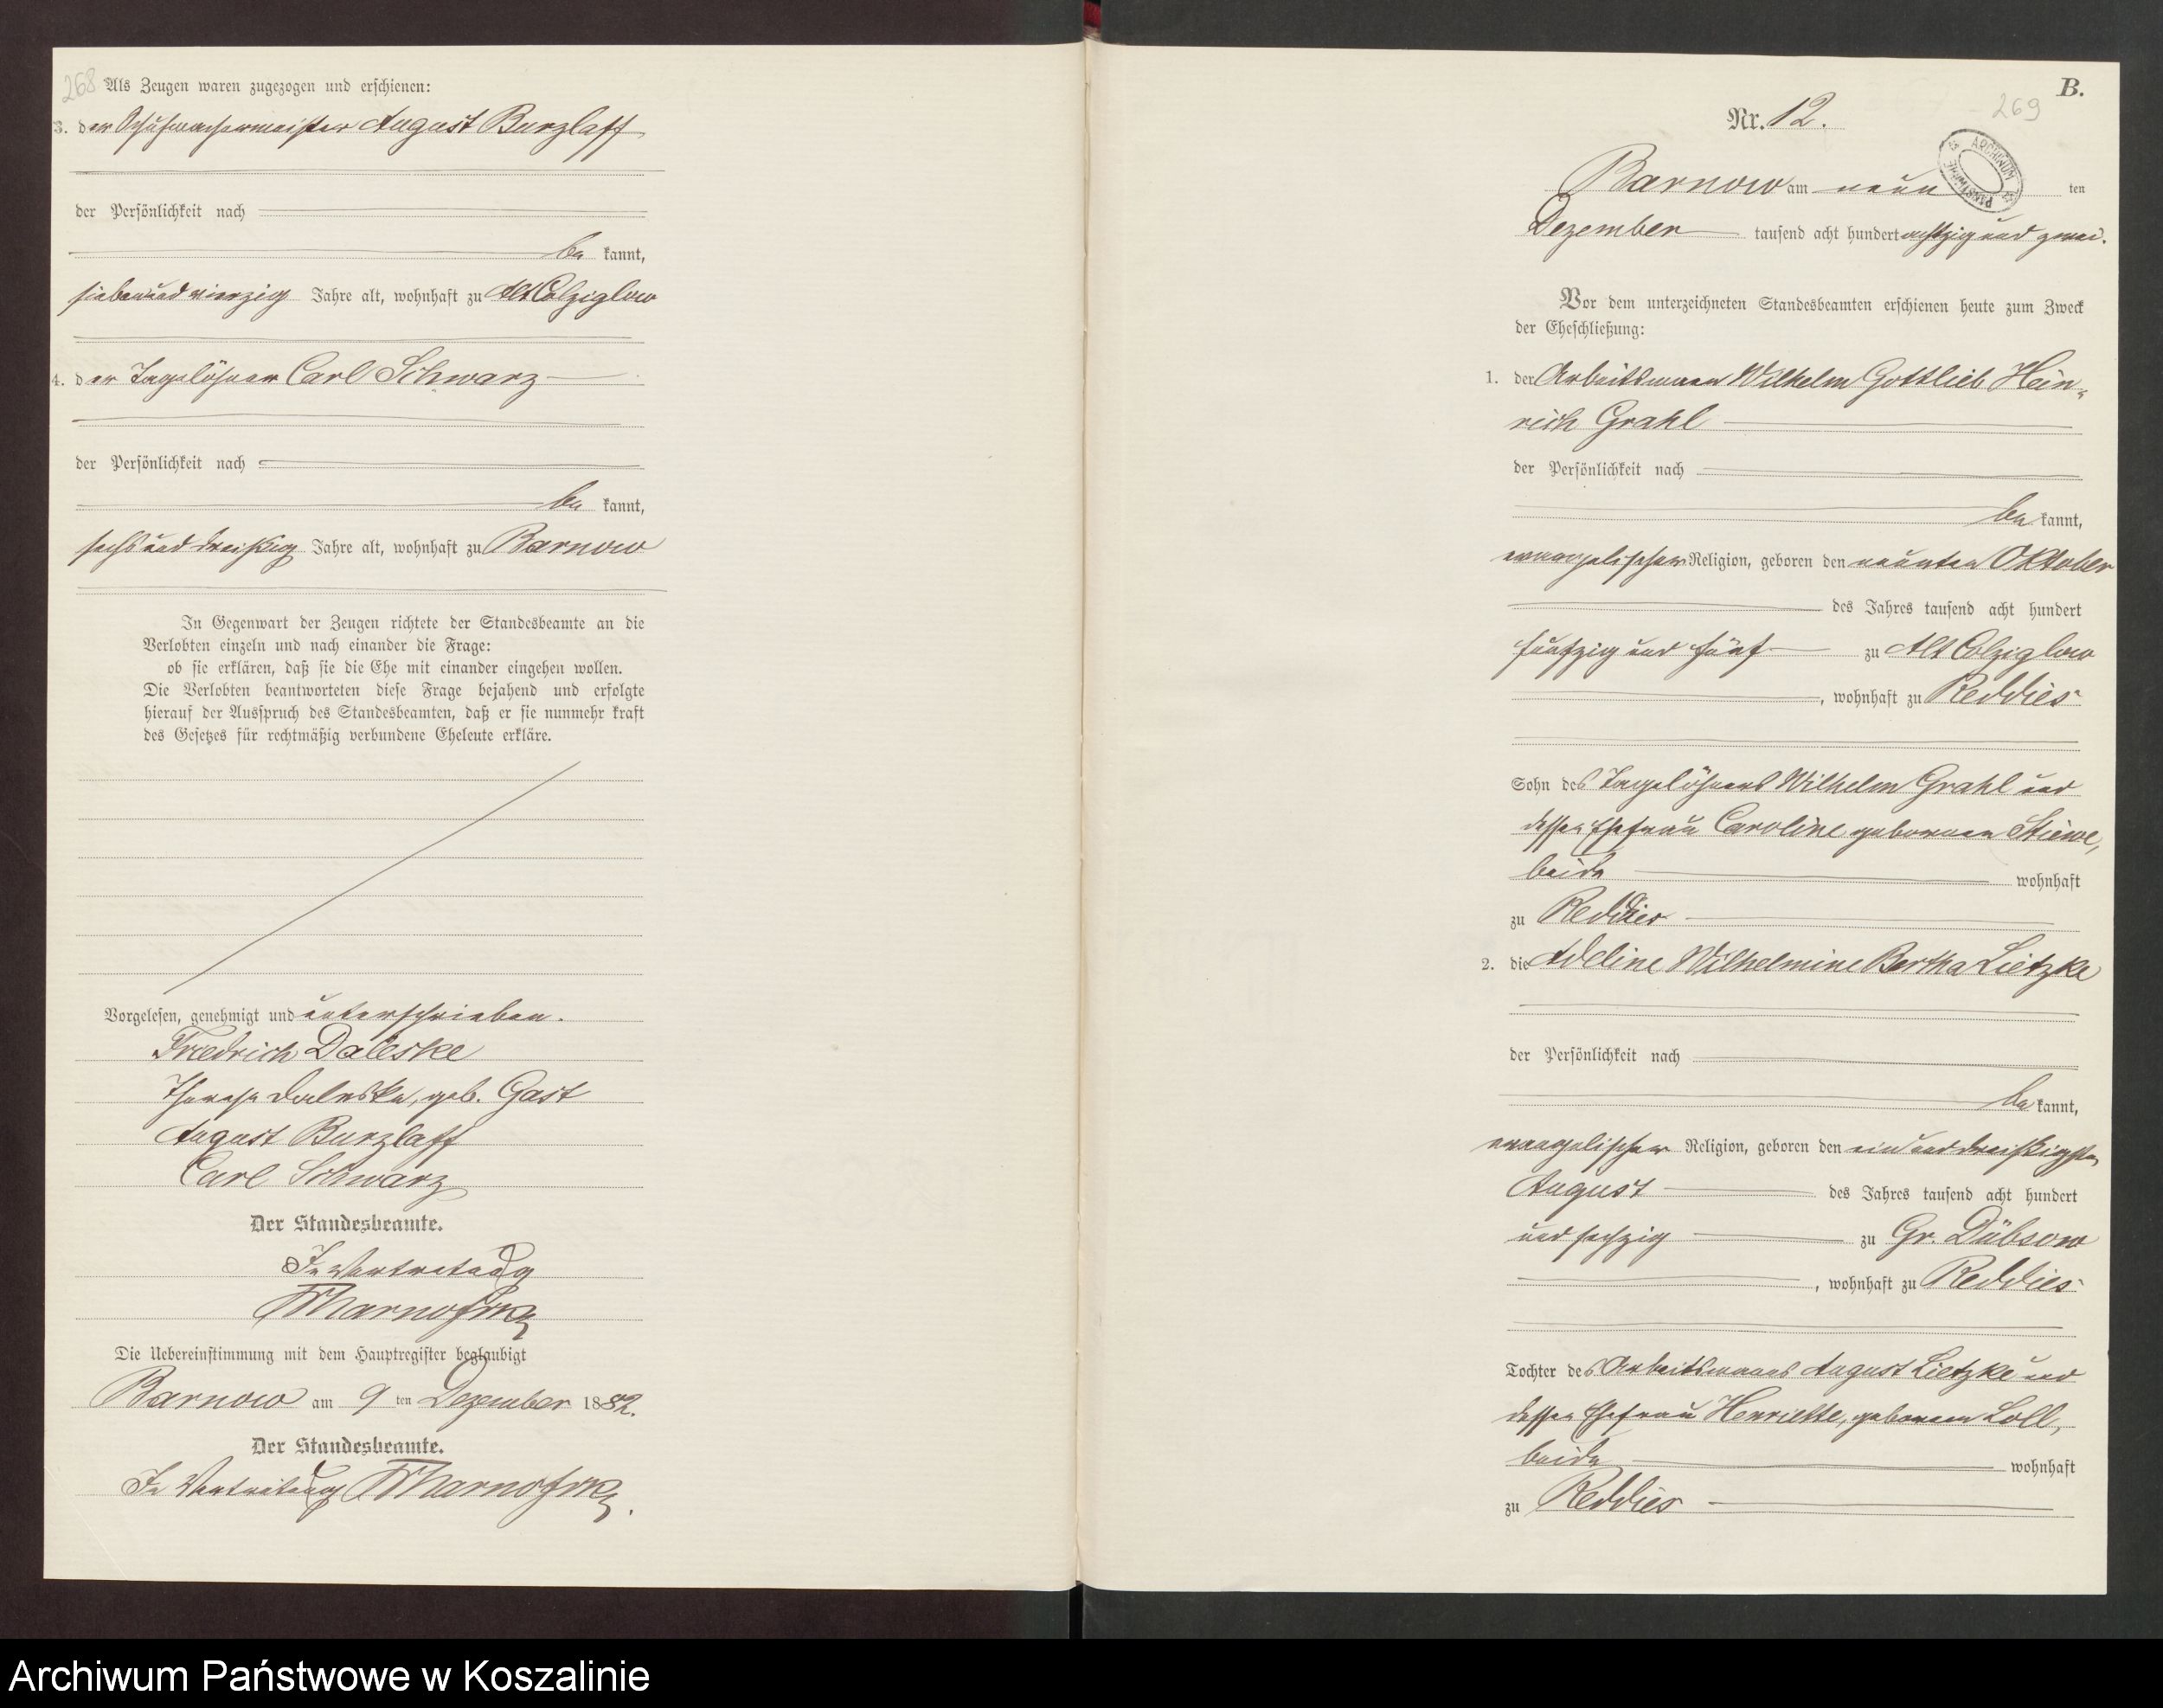 268 Als Zeugen waren zugezogen und erschienen:
3. der Schuhmachermeister August Burzlaff
der Persönlichkeit nach
be kannt,
siebenundvierzig Jahre alt, wohnhaft zu Alt Colziglow
4. der Tagelöhner Carl Schwarz
der Persönlichkeit nach
be kannt,
sechsunddreißig Jahre alt, wohnhaft zu Barnow
In Gegenwart der Zeugen richtete der Standesbeamte an die
Verlobten einzeln und nach einander die Frage:
ob sie erklären, daß sie die Ehe mit einander eingehen wollen.
Die Verlobten beantworteten diese Frage bejahend und erfolgte
hierauf der Ausspruch des Standesbeamten, daß er sie nunmehr kraft
des Gesetzes für rechtmäßig verbundene Eheleute erkläre.
Vorgelesen, genehmigt und unterschrieben.
Friedrich Daleske
Therese Daleske, geb. Gast
August Burzlaff
Carl Schwarz
Der Standesbeamte.
In Vertretung
Die Uebereinstimmung mit dem Hauptregister beglaubigt
Barnow am 9 ten Dezember 1882.
Der Standesbeamte.
In Vertretung
B.
269
Nr. 12.
ARCHIWUM PAŃSTWOWE
Barnow am neun ten
Dezember tausend acht hundert achtzig und zwei.
Vor dem unterzeichneten Standesbeamten erschienen heute zum Zweck
der Eheschließung:
1. der Arbeitsmann Wilhelm Gottlieb Hein-
rich Grahl
der Persönlichkeit nach
be kannt,
evangelischer Religion, geboren den neunten Oktober
des Jahres tausend acht hundert
fünfzig und fünf zu Alt Colziglow
, wohnhaft zu Reddies
Sohn des Tagelöhners Wilhelm Grahl und
dessen Ehefrau Caroline geborenen Stüwe,
beide wohnhaft
zu Reddies
2. die Adeline Wilhelmine Bertha Lietzke
der Persönlichkeit nach
be kannt,
evangelischer Religion, geboren den einunddreißigsten
August des Jahres tausend acht hundert
und sechzig zu Gr. Dübsow
, wohnhaft zu Reddies
Tochter des Arbeitsmanns August Lietzke und
dessen Ehefrau Henriette, geborenen Loll,
beide wohnhaft
zu Reddies
Archiwum Państwowe w Koszalinie